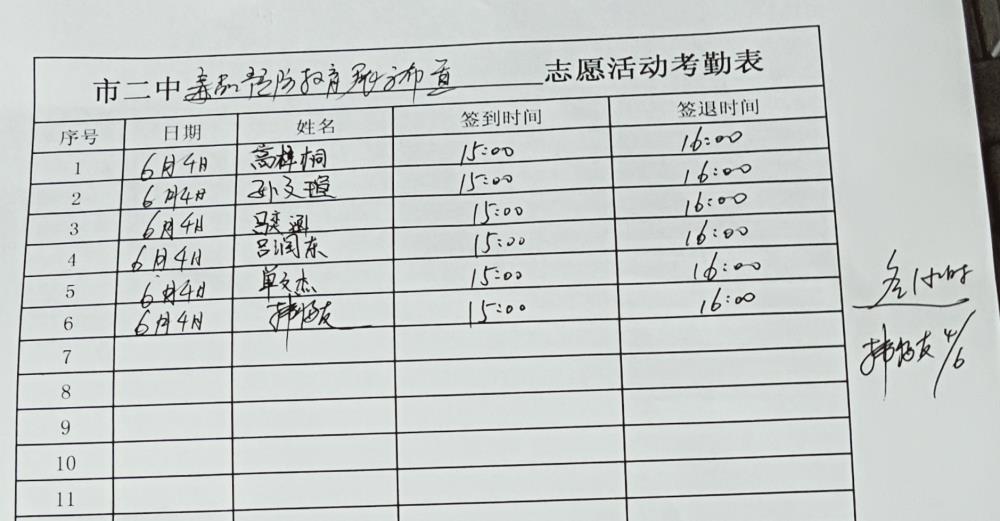 市二中毒品预防教育展厅布置志愿活动考勤表
序号 日期 姓名 签到时间 签退时间
1 6月4日 高梓桐 15:00 16:00
2 6月4日 孙文瑄 15:00 16:00
3 6月4日 吕奕涵 15:00 16:00
4 6月4日 吕润东 15:00 16:00
5 6月4日 单文杰 15:00 16:00
6 6月4日 15:00 16:00
7
8
9
10
11
小时
4/6